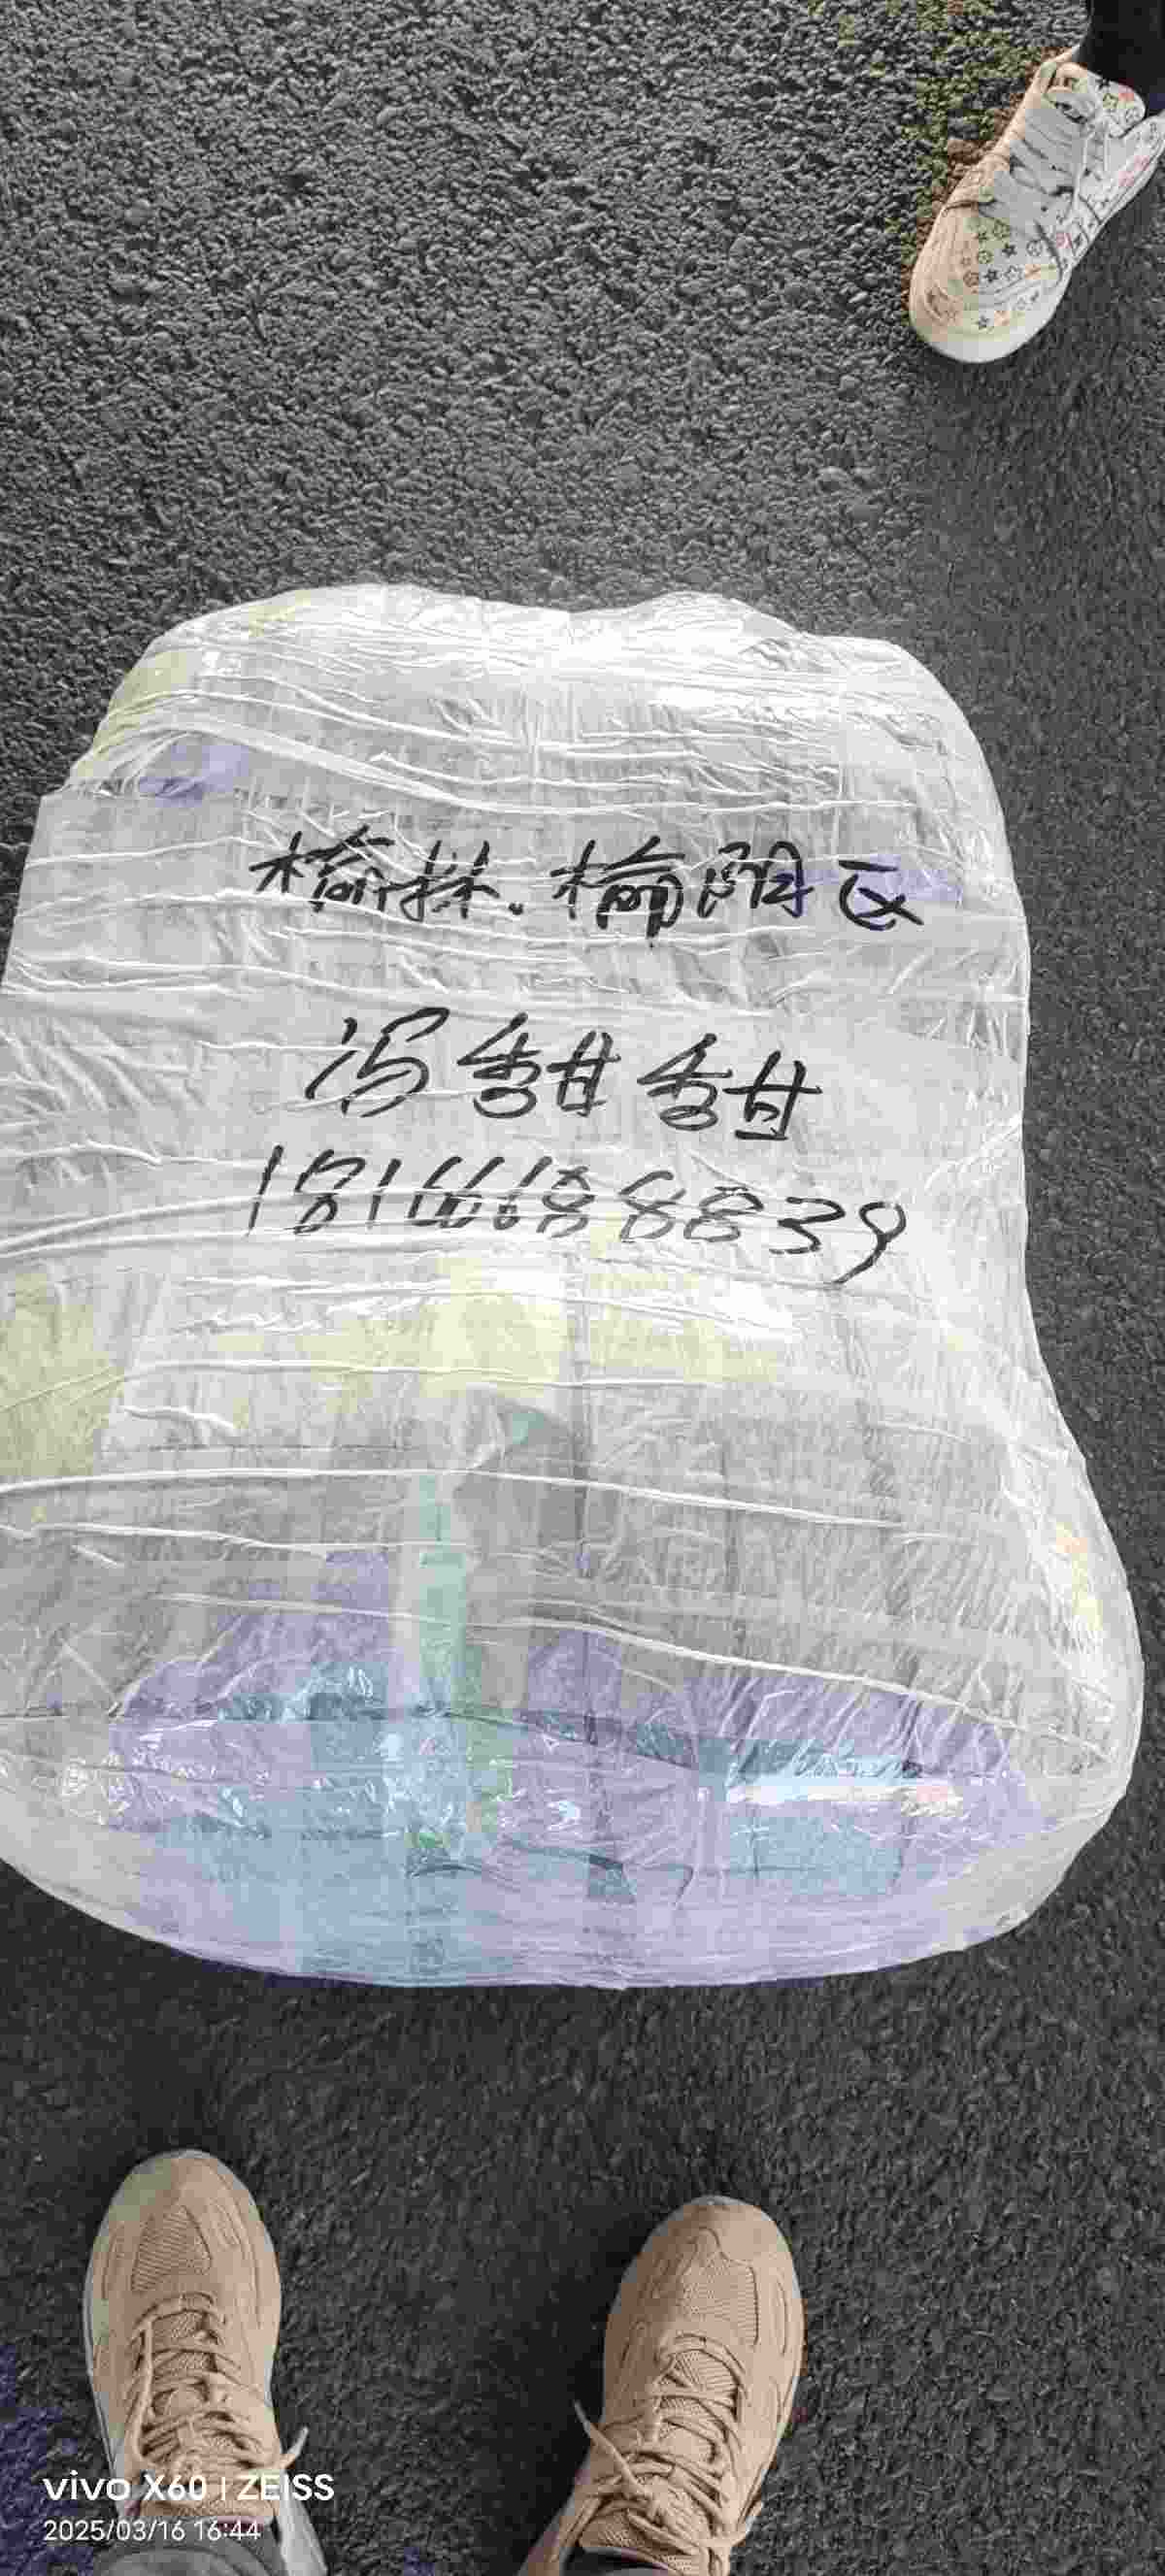 榆林.榆阳区
冯甜甜
18166688839
vivo X60 | ZEISS
2025/03/16 16:44